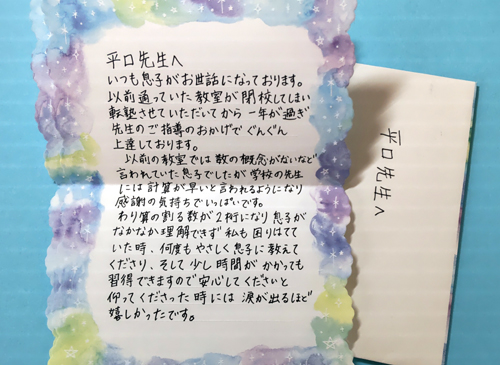 平口先生へ
いつも息子がお世話になっております。
以前通っていた教室が閉校してしまい
転塾させていただいてから一年が過ぎ
先生のご指導のおかげで ぐんぐん
上達しております。
以前の教室では数の概念がないなど
言われていた息子でしたが学校の先生
には計算が早いと言われるようになり
感謝の気持ちでいっぱいです。
わり算の割る数が2桁になり息子が
なかなか理解できず私も困りはてて
いた時、何度もやさしく息子に教えて
くださり、そして少し時間がかかっても
習得できますので安心してくださいと
仰ってくださった時には涙が出るほど
嬉しかったです。
平口先生へ